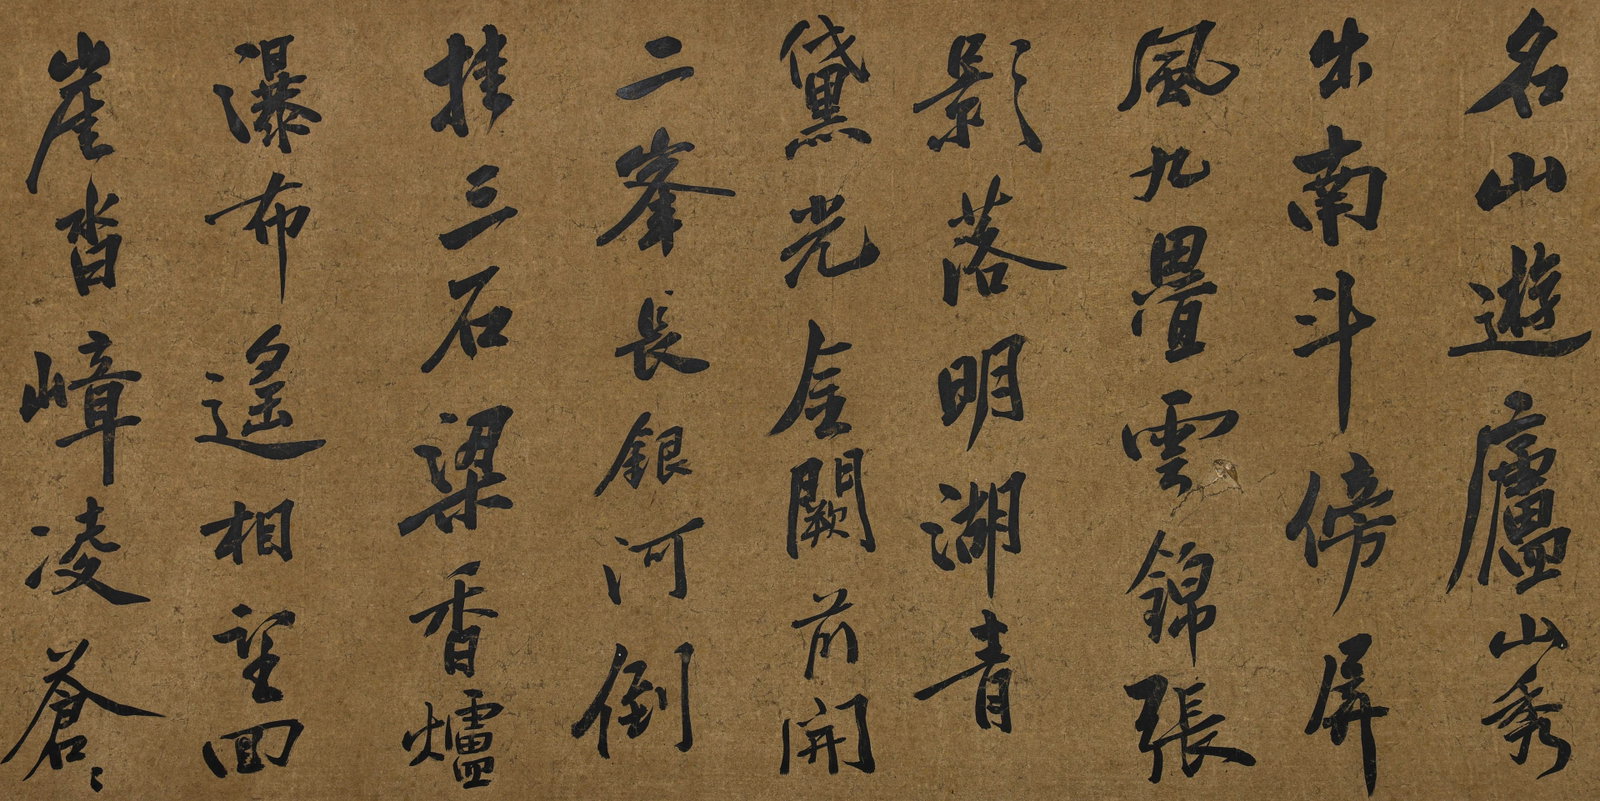 名山遊廬山秀
出南斗傍屏
風九疊雲錦張
影落明湖青
黛光金闕前開
二峯長銀河倒
挂三石梁香爐
瀑布遙相望回
崖沓嶂凌蒼〻